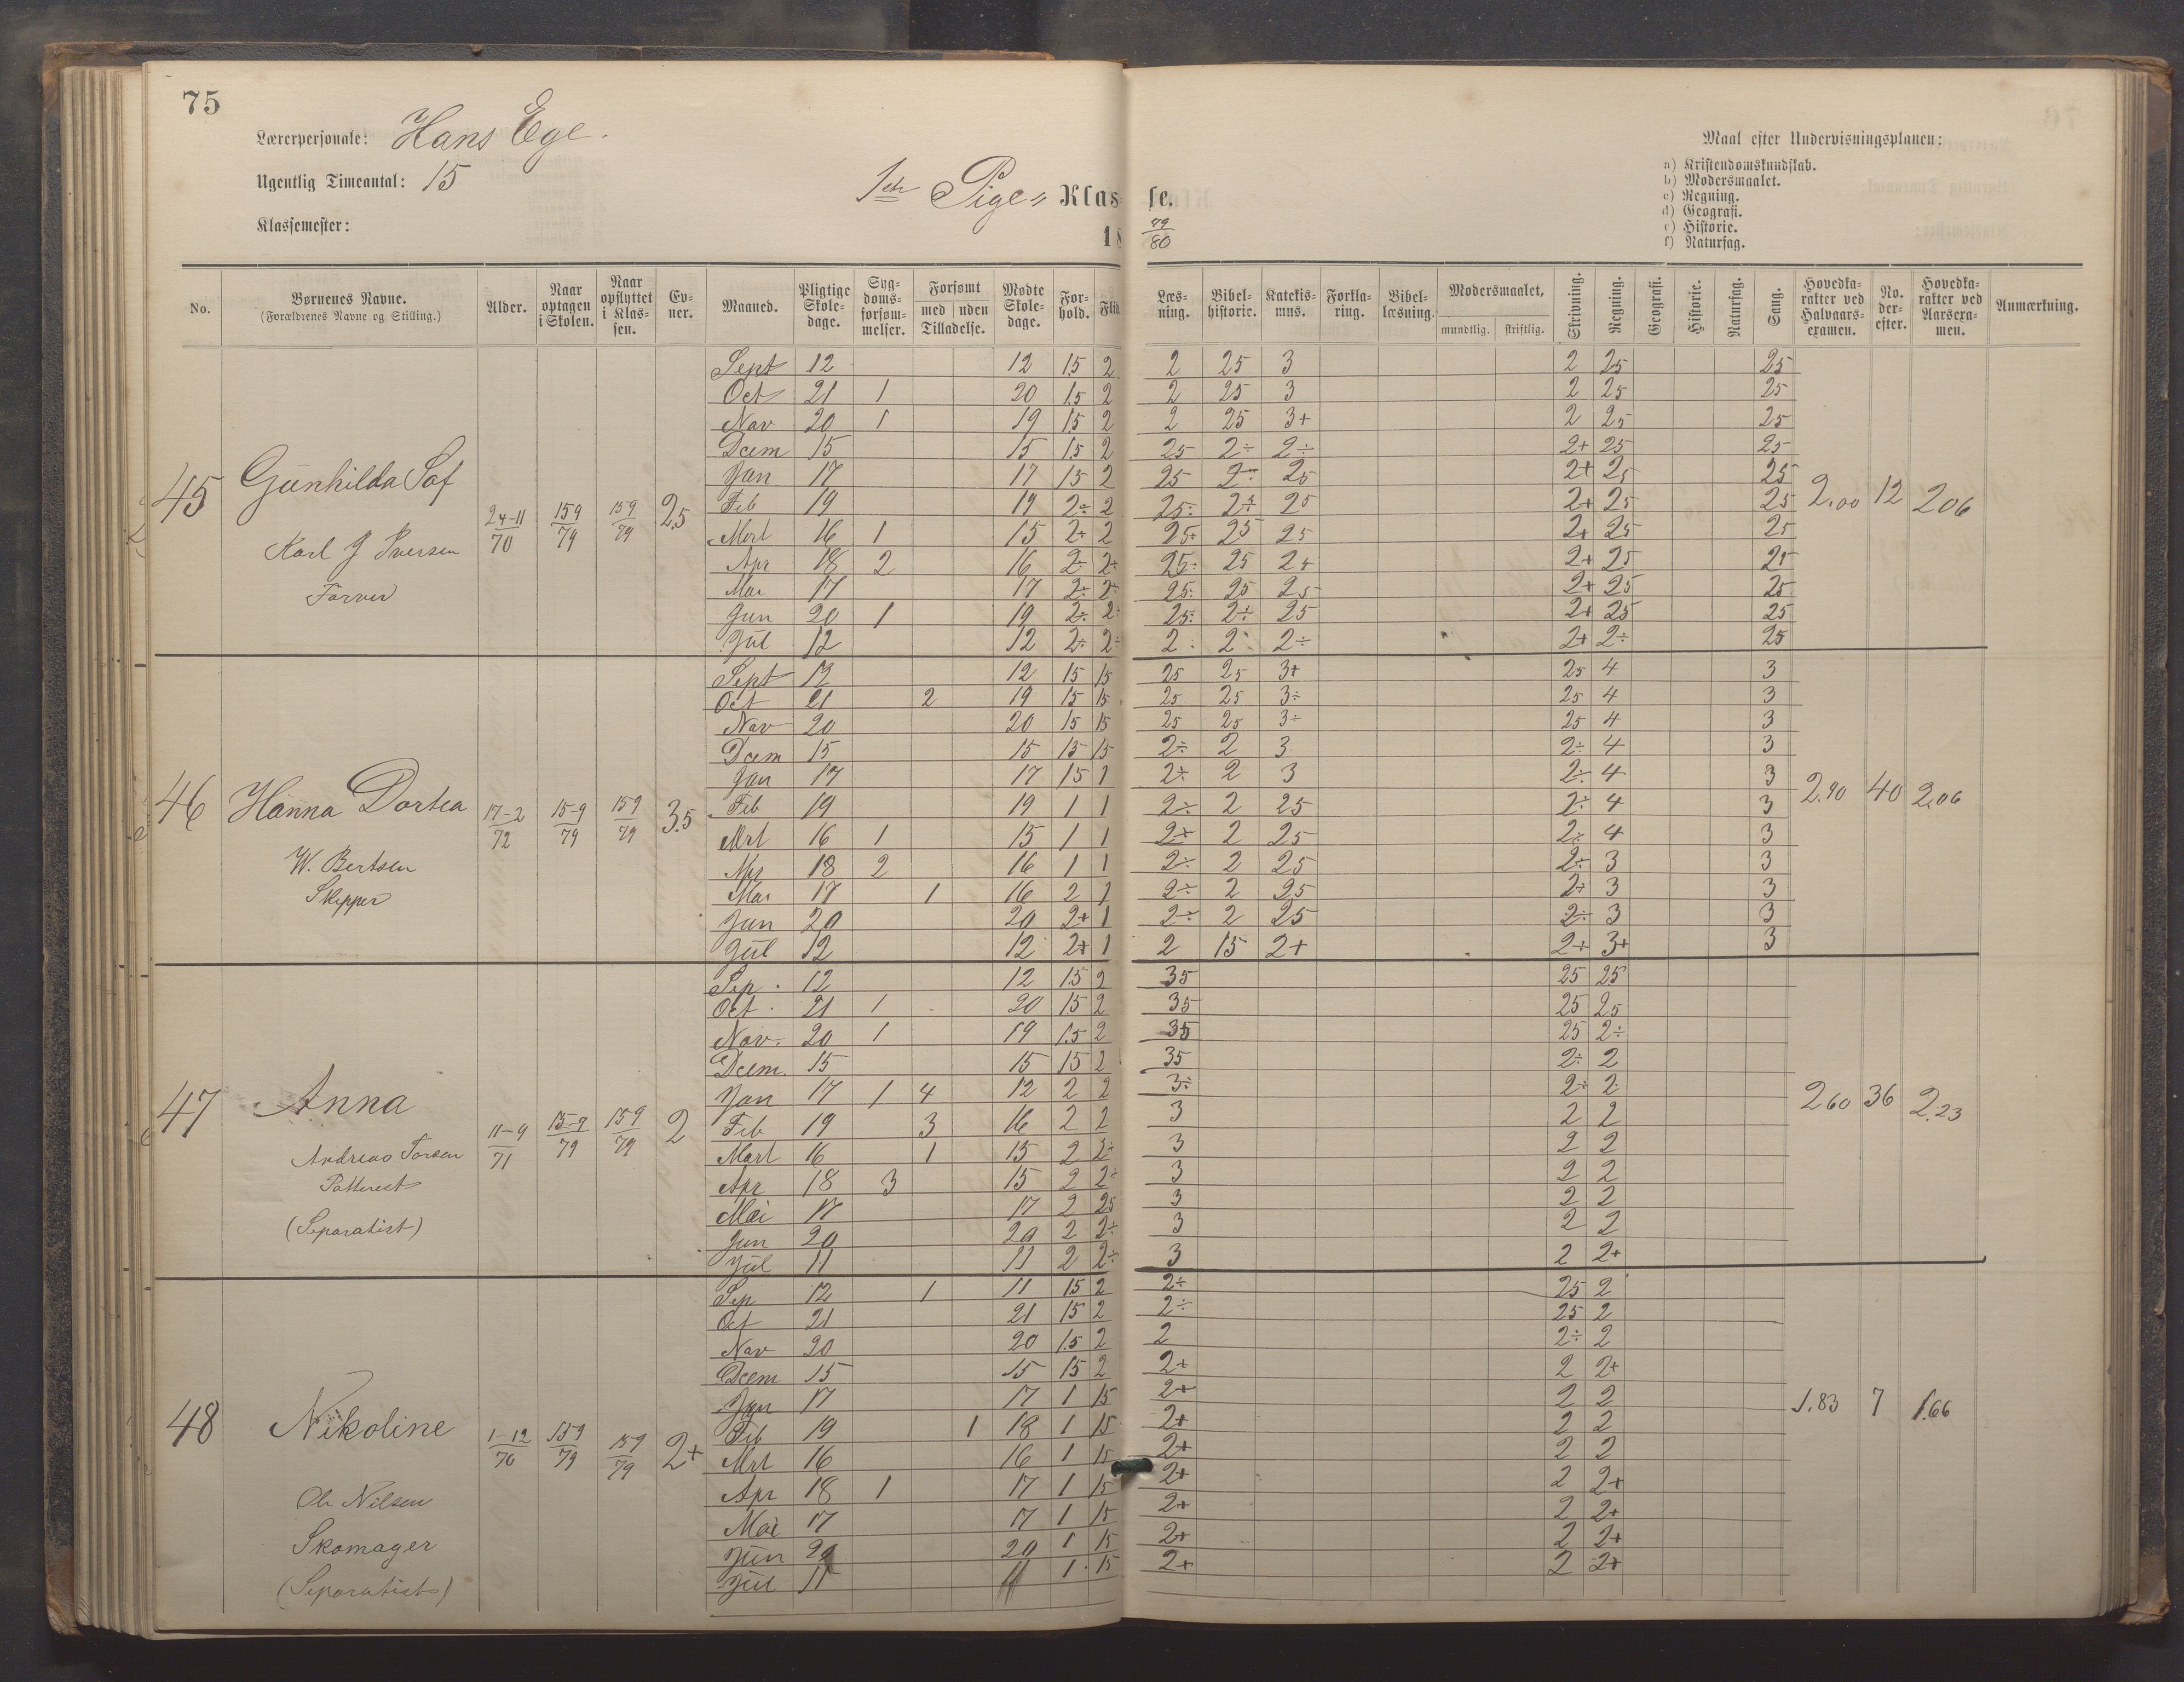 75
Lærerpersonale: Hans Ege.
Ugentlig Timeantal: 15
Klassemester:
1ste Pige- Klasse.
18 79/80
Maal efter Undervisningsplanen:
a) Kristendomskundskab.
b) Modersmaalet.
c) Regning.
d) Geografi.
e) Historie.
f) Naturfag.
No. Børnenes Navne. (Forældrenes Navne og Stilling.) Alder. Naar optagen i Skolen. Naar opflyttet i Klassen. Evner. Maaned. Pligtige Skoledage. Sygdomsforsømmelser. Forsømt med uden Tilladelse. Mødte Skoledage. Forhold. Flid. Læsning. Bibelhistorie. Katekismus. Forklaring. Bibellæsning. Modersmaalet, mundtlig. skriftlig. Skrivning. Regning. Geografi. Historie. Naturfag. Sang. Hovedkarakter ved Halvaarsexamen. No. derefter. Hovedkarakter ved Aarsexamen. Anmærkning.
45 Gunhilda Sof
Karl J Iversen
Farver
24-11/70 159/79 159/79 2.5
Sept 12 12 15 2 2 25 3 2 25 25
Oct 21 1 20 1.5 2 2 25 3 2 25 25
Nov 20 1 19 15 2 2 25 3+ 2 25 25
Dcem 15 15 1.5 2 25 2÷ 2÷ 2+ 25 25
Jan 17 17 15 2 25 2÷ 25 2+ 25 25
Feb 19 19 2÷ 2 25÷ 2÷ 25 2+ 25 25
Mrt 16 1 15 2+ 2 25÷ 25 25 2+ 25 25
Apr 18 2 16 2÷ 2÷ 25÷ 25 25 2+ 25 25
Mai 17 17 2÷ 2÷ 25÷ 25 25 2+ 25 25
Jun 20 1 19 2÷ 2÷ 25÷ 2÷ 25 2+ 25 25
Jul 12 12 2÷ 2÷ 2 2 2÷ 2+ 2÷ 25
2.00 12 206
46 Hanna Dortea
W. Bertsen
Skipper
17-2/72 15-9/79 159/79 3.5
Sept 12 12 15 15 25 25 3+ 25 4 3
Oct 21 2 19 15 15 25 25 3÷ 25 4 3
Nov 20 20 15 15 25 25 3÷ 25 4 3
Dcem 15 15 15 15 2÷ 2 3 2÷ 4 3
Jan 17 17 15 1 2÷ 2 3 2÷ 4 3
Feb 19 19 1 1 2÷ 2 25 2÷ 4 3
Mrt 16 1 15 1 1 2÷ 2 25 2÷ 4 3
Apr 18 2 16 1 1 2÷ 2 25 2÷ 3 3
Mai 17 1 16 2 1 2÷ 2 25 2÷ 3 3
Jun 20 20 2+ 1 2÷ 2 25 2÷ 3 3
Jul 12 12 2+ 1 2 15 2+ 2÷ 3+ 3
2.90 40 2.06
47 Anna
Andreas Torsen
(Separatist)
11-9/71 15-9/79 159/79 2
Sep. 12 12 15 2 35 25 25
Oct. 21 1 20 15 2 35 25 25
Nov. 20 1 19 1.5 2 35 25 2÷
Dcem. 15 15 15 2 35 2÷ 2
Jan 17 1 4 12 2 2 3÷ 2÷ 2
Feb 19 3 16 2 2 3 2 2
Mart 16 1 15 2 2÷ 3 2 2
Apr 18 3 15 2 2÷ 3 2 2
Mai 17 17 2 25 3 2 2
Jun 20 20 2 2÷ 3 2 2
Jul 11 11 2 2÷ 3 2 2+
260 36 2.23
48 Nikoline
Ole Nilsen
Skomager
(Separatist)
1-12/70 159/79 159/79 2+
Sep 12 1 11 15 2 2÷ 25 2
Oct 21 21 15 2 2÷ 25 2
Nov 20 20 1.5 2 2 2÷ 2
Dcem 15 15 15 2 2+ 2 2+
Jan 17 17 1 15 2+ 2 2
Feb 19 1 18 1 15 2+ 2 2
Mrt 16 16 1 15 2+ 2 2
Apr 18 1 17 1 15 2+ 2 2+
Mai 17 17 1 15 2+ 2 2+
Jun 20 20 1 15 2+ 2 2+
Jul 11 11 1 15 2+ 2 2+
1.83 7 1.66